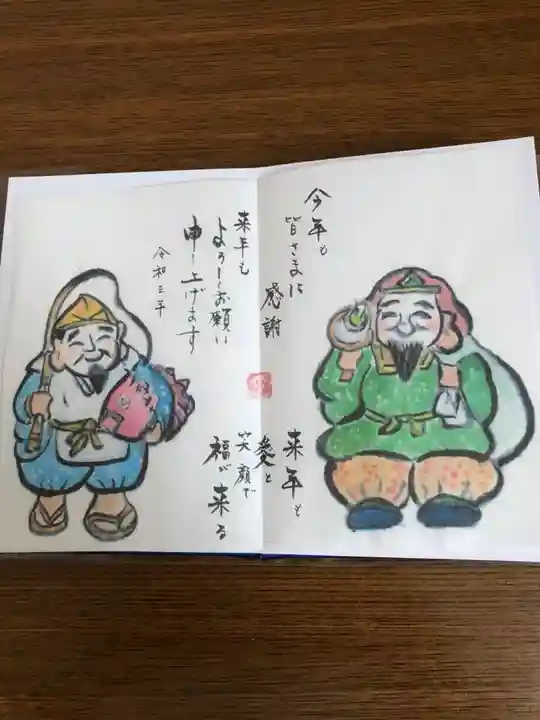 今年も
皆さまに
感謝
来年も
愛と
笑顔で
福が来る
来年も
よろしくお願い
申し上げます
令和三年